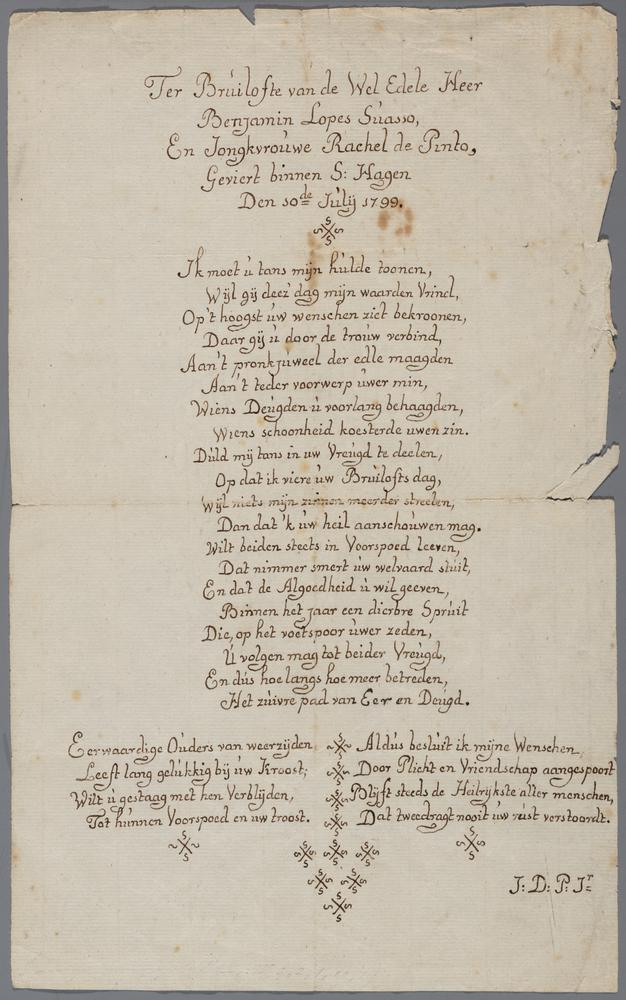 Ter Bruilofte van de Wel Edele Heer
Benjamin Lopes Suasso,
En Jongkvrouwe Rachel de Pinto,
Geviert binnen S: Hagen
Den 10de Julij 1799.
Ik moet u tans mijn hulde toonen,
Wijl gij deez' dag mijn waarden Vrind,
Op't hoogst uw wenschen ziet bekroonen,
Daar gij u door de trouw verbind,
Aan't pronkjuweel der edle maagden
Aan't teder voorwerp uwer min,
Wiens Deugden u voorlang behaagden,
Wiens schoonheid koesterde uwen zin.
Duld mij tans in uw Vreugd te deelen,
Op dat ik viere uw Bruilofts dag,
Wijl niets mijn zinnen meerder streelen,
Dan dat 'k uw heil aanschouwen mag.
Wilt beiden steets in Voorspoed leeven,
Dat nimmer smert uw welvaard stuit,
En dat de Algoedheid u wil geeven,
Binnen het jaar een dierbre Spruit
Die, op het voetspoor uwer zeden,
U volgen mag tot beider Vreugd,
En dus hoe langs hoe meer betreden,
Het zuivre pad van Eer en Deugd.
Eerwaardige Ouders van weerzijden
Leeft lang gelukkig bij uw Kroost;
Wilt u gestaag met hen Verblijden,
Tot hunnen Voorspoed en uw troost.
Aldus besluit ik mijne Wenschen,
Door Plicht en Vriendschap aangespoort
Blijft steeds de Heilrijkste aller menschen,
Dat tweedragt nooit uw rust verstoordt.
J: D: P: Jr